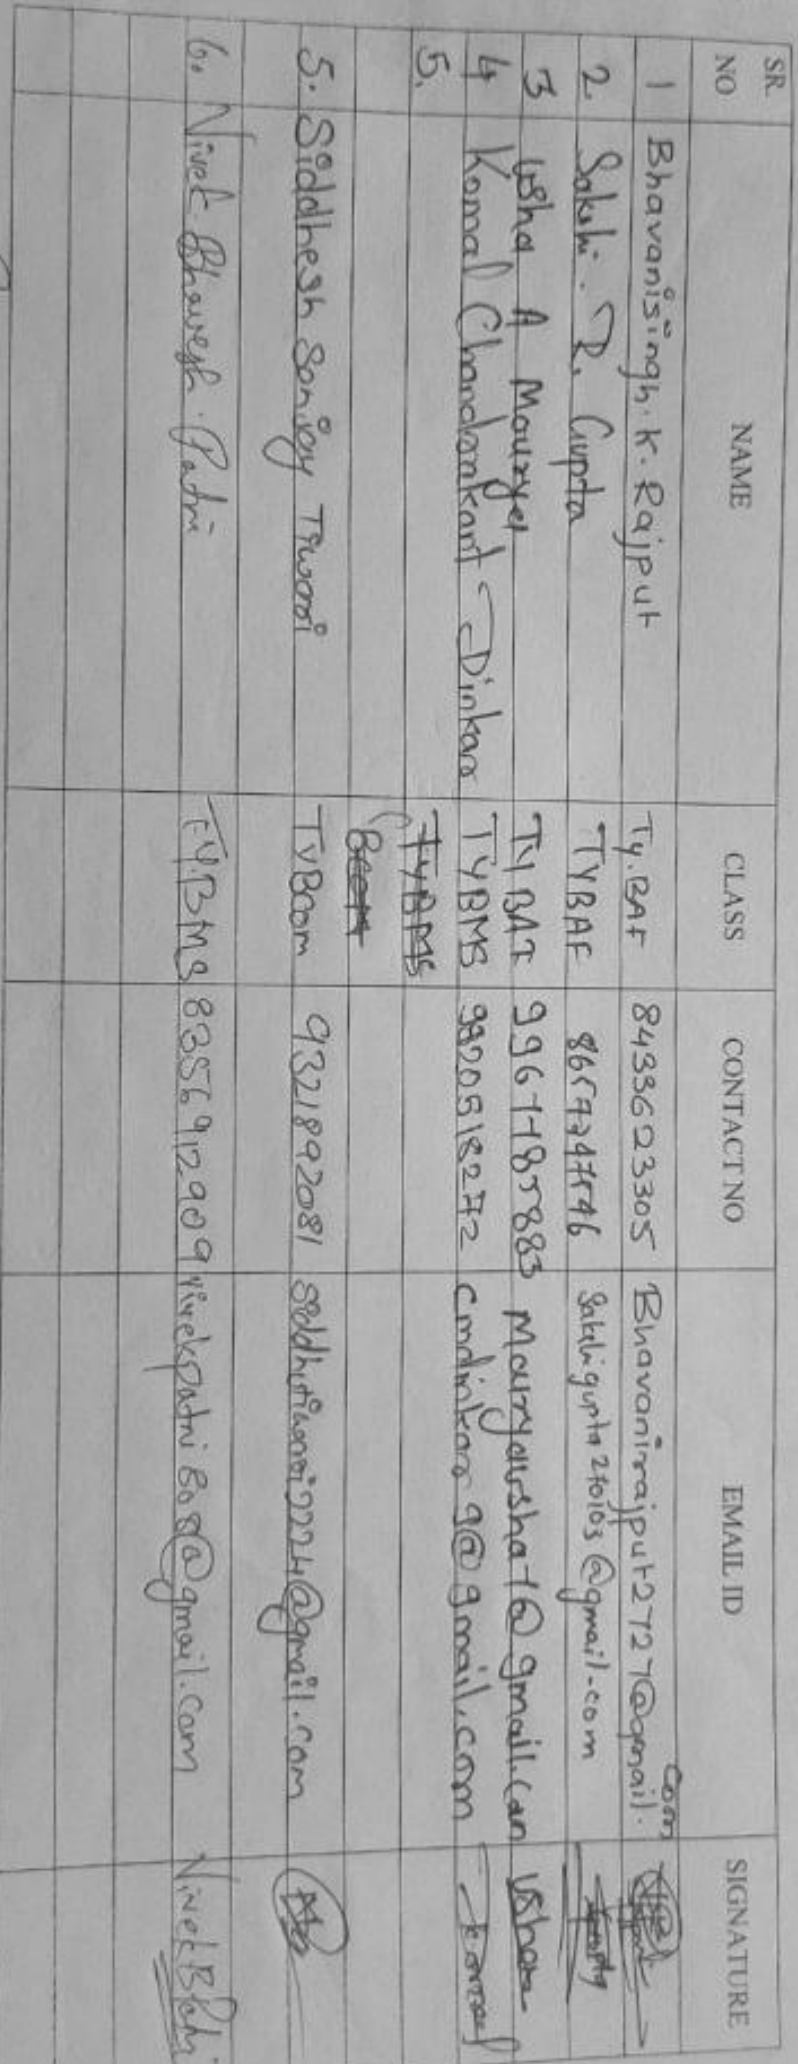 SR. NO NAME CLASS CONTACT NO EMAIL ID SIGNATURE
1 Bhavanisingh. K. Rajput Ty.BAF 8433623305 Bhavanirajput2727@gmail.com
2. Sakshi. R. Gupta TYBAF Sakshigupta270103@gmail.com
3 Usha A Maurya TYBAF Mauryausha7@gmail.com Usha
4 Komal Chandrakant Dinkar TYBMS 9920518272 cmdinkar9@gmail.com Komal
5. TYBMS
Bcom
5. Siddhesh Sanjay Tiwari TYBcom 9321892081 siddhitiwari2224@gmail.com
6. Vivek Bhavesh. Patni T.Y.BMS 8356912909 vivekpatni808@gmail.com